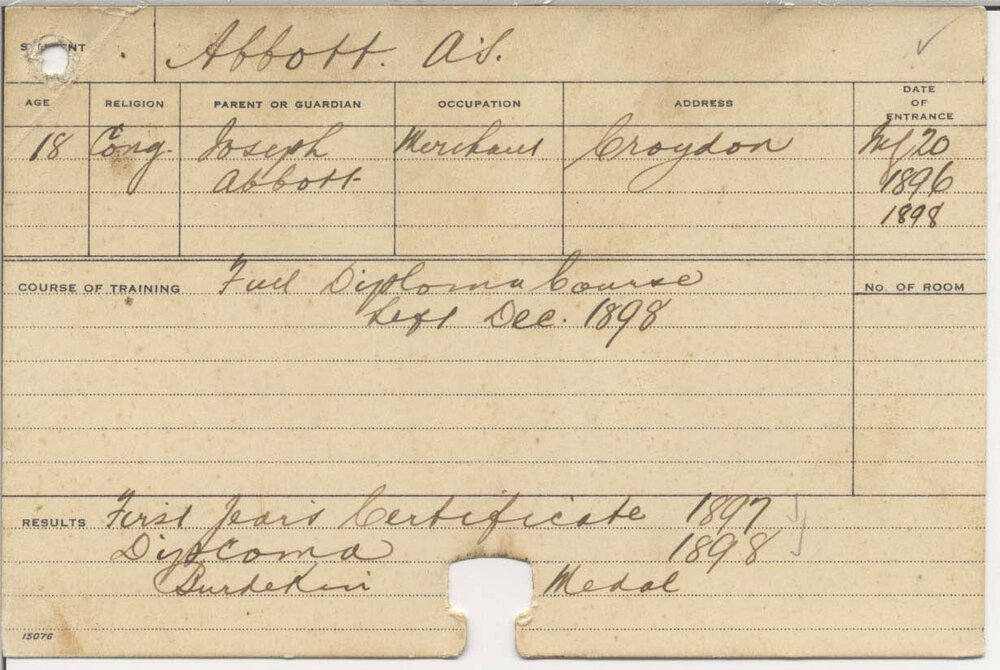 STUDENT Abbott. A.S.
AGE RELIGION PARENT OR GUARDIAN OCCUPATION ADDRESS DATE OF ENTRANCE
18 Cong. Joseph Merchant Croydon 20
Abbott 1896
1898
COURSE OF TRAINING Full Diploma Course No. OF ROOM
Left Dec. 1898
RESULTS First Years Certificate 1897
Diploma 1898
Burdekin Medal
15076